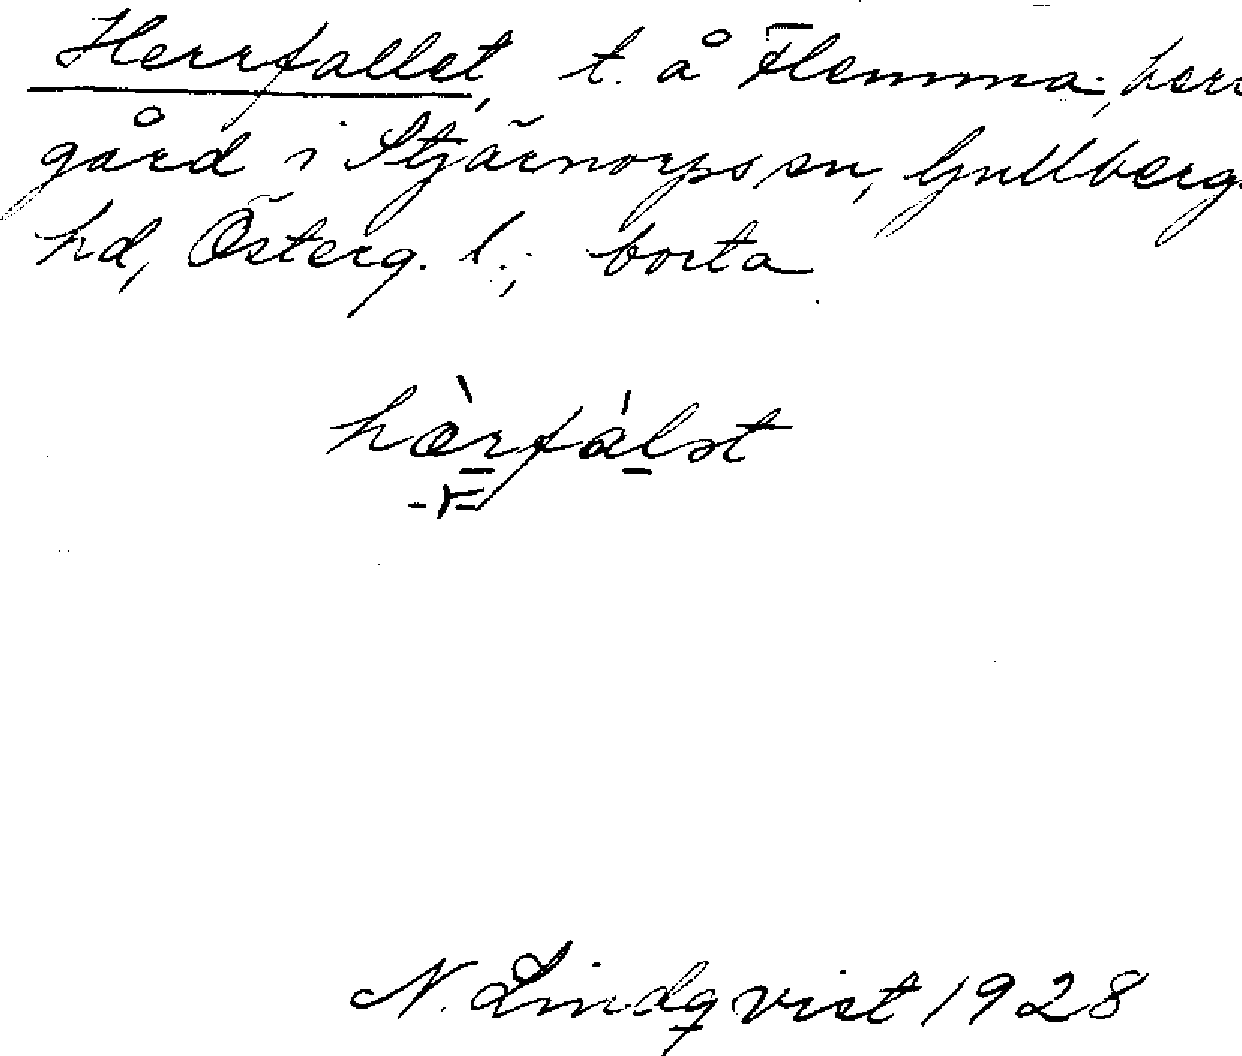 Herrfallet, t. å Flemma, herr
gård i Stjärnorps sn, Gullbergs
hd, Österg. l.; borta
N. Lindqvist 1928